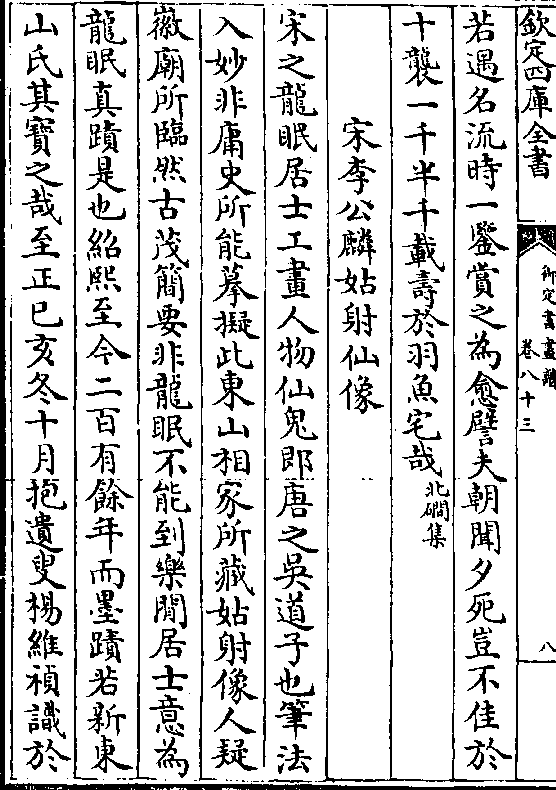 欽定四庫全書
御定書畫譜
卷八十三
八
若遇名流時一鑒賞之為愈譬夫朝聞夕死豈不佳於
十襲一千半千載壽於羽魚宅哉北磵集
宋李公麟姑射仙像
宋之龍眠居士工畫人物仙鬼即唐之吳道子也筆法
入妙非庸史所能摹擬此東山相家所藏姑射像人疑
徽廟所臨然古茂簡要非龍眠不能到樂閒居士意為
龍眠真蹟是也紹熙至今二百有餘年而墨蹟若新東
山氏其寶之哉至正已亥冬十月抱遺叟楊維禎識於